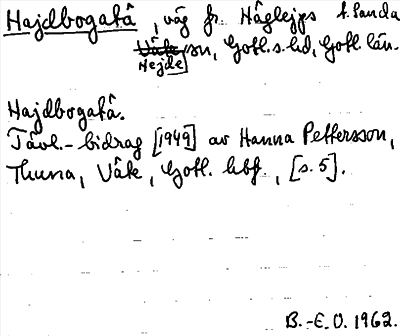 Hajdbogatå, väg fr. Häglejps t. Sanda
Hejde sn, Gotl. s. hd, Gotl. län.
Hajdbogatå.
Tävl.-bidrag [1949] av Hanna Pettersson,
Thuna, Väte, Gotl. hbf., [s. 5].
B.-E. O. 1962.